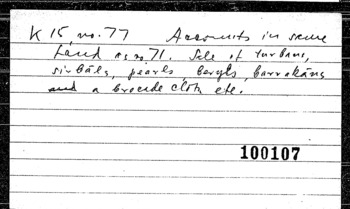 K 15 no. 77 Accounts in same
hand as no 71. Sale of turbans,
sirbāls, pearls, beryls, barrakāns
and a brocade cloth etc.
100107